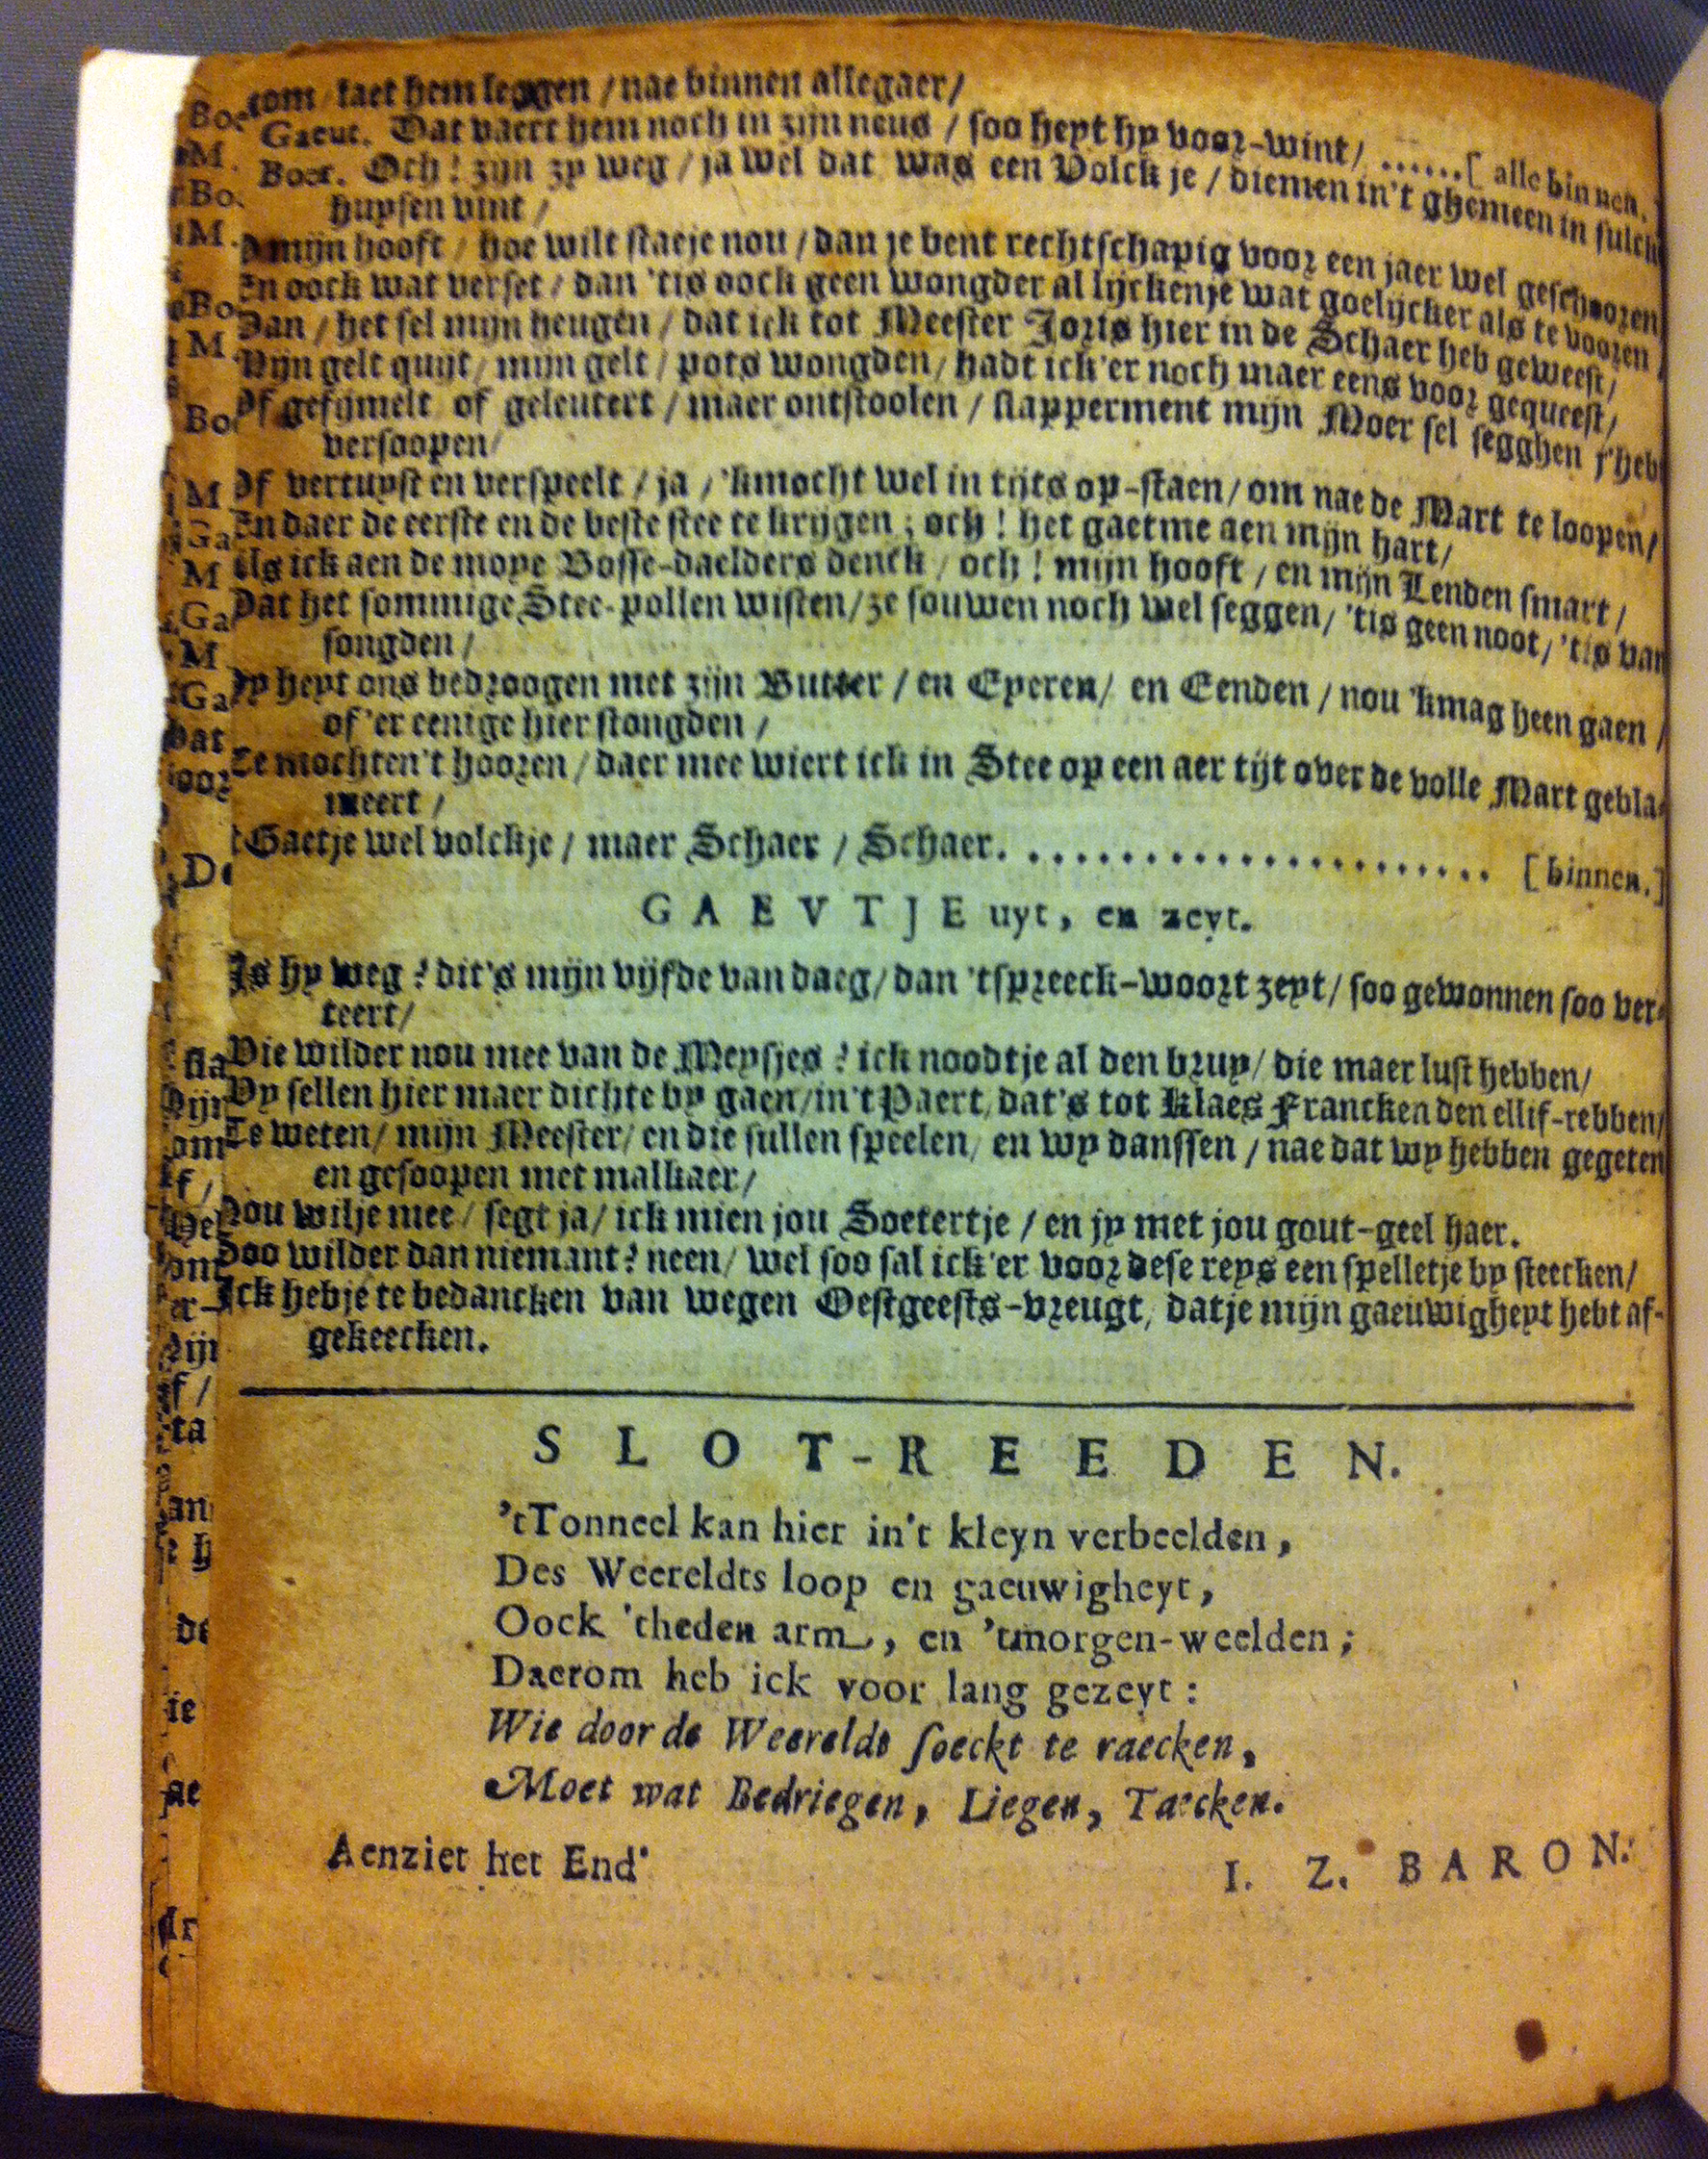 kom / laet hem leggen / nae binnen allegaer /
Gaeut. Dat vaert hem noch in zijn neus / soo heyt hy voor-wint / ......[ alle binnen.
Boer. Och! zijn zy weg / ja wel dat was een Volckje / diemen in't ghemeen in sulck
huysen vint /
O mijn hooft / hoe wilt staeje nou / dan je bent rechtschapig voor een jaer wel geschooren
En oock wat verset / dan 'tis oock geen wongder al lijckenje wat goelijcker als te vooren /
Dan / het sel mijn heugen / dat ick tot Meester Joris hier in de Schaer heb geweest /
Mijn gelt quijt / mijn gelt / pots wongden / hadt ick'er noch maer eens voor gequeest /
Of gefijmelt of geleutert / maer ontstoolen / slapperment mijn Moer sel segghen j'heb
versoopen /
Of vertuyst en verspeelt / ja / 'kmocht wel in tijts op-staen / om nae de Mart te loopen /
En daer de eerste en de beste stee te krijgen ; och ! het gaetme aen mijn hart /
Als ick aen de moye Bosse-daelders denck / och ! mijn hooft / en mijn Lenden smart /
Dat het sommige Stee-pollen wisten / ze souwen noch wel seggen / 'tis geen noot / 'tis van
songden /
Hy heyt ons bedroogen met zijn Butter / en Eyeren / en Eenden / nou 'kmag heen gaen /
of'er eenige hier stongden /
Ze mochten't hooren / daer mee wiert ick in Stee op een aer tijt over de volle Mart gebla-
meert /
Gaetje wel volckje / maer Schaer / Schaer. ..................... [ binnen. ]
GAEVTJE uyt, en zeyt.
Is hy weg ? dit's mijn vijfde van daeg / dan 'tspreeck-woort zeyt / soo gewonnen soo ver-
teert /
Wie wilder nou mee van de Meysjes ? ick noodtje al den bruy / die maer lust hebben /
Wy sellen hier maer dichte by gaen / in't Paert, dat's tot Klaes Francken den ellif-rebben /
Te weten / mijn Meester / en die sullen speelen / en wy danssen / nae dat wy hebben gegeten
en gesoopen met malkaer /
Nou wilje mee / segt ja / ick mien jou Soetertje / en jy met jou gout-geel haer.
Soo wilder dan niemant ? neen / wel soo sal ick'er voor dese reys een spelletje by steecken /
Ick hebje te bedancken van wegen Oestgeests-vreugt, datje mijn gaeuwigheyt hebt af-
gekeecken.
SLOT-REEDEN.
'tTonneel kan hier in't kleyn verbeelden,
Des Weereldts loop en gaeuwigheyt,
Oock 'theden arm, en 'tmorgen-weelden;
Daerom heb ick voor lang gezeyt:
Wie door de Weereldt soeckt te raecken,
Moet wat Bedriegen, Liegen, Taecken.
Aenziet het End'
I. Z. BARON.